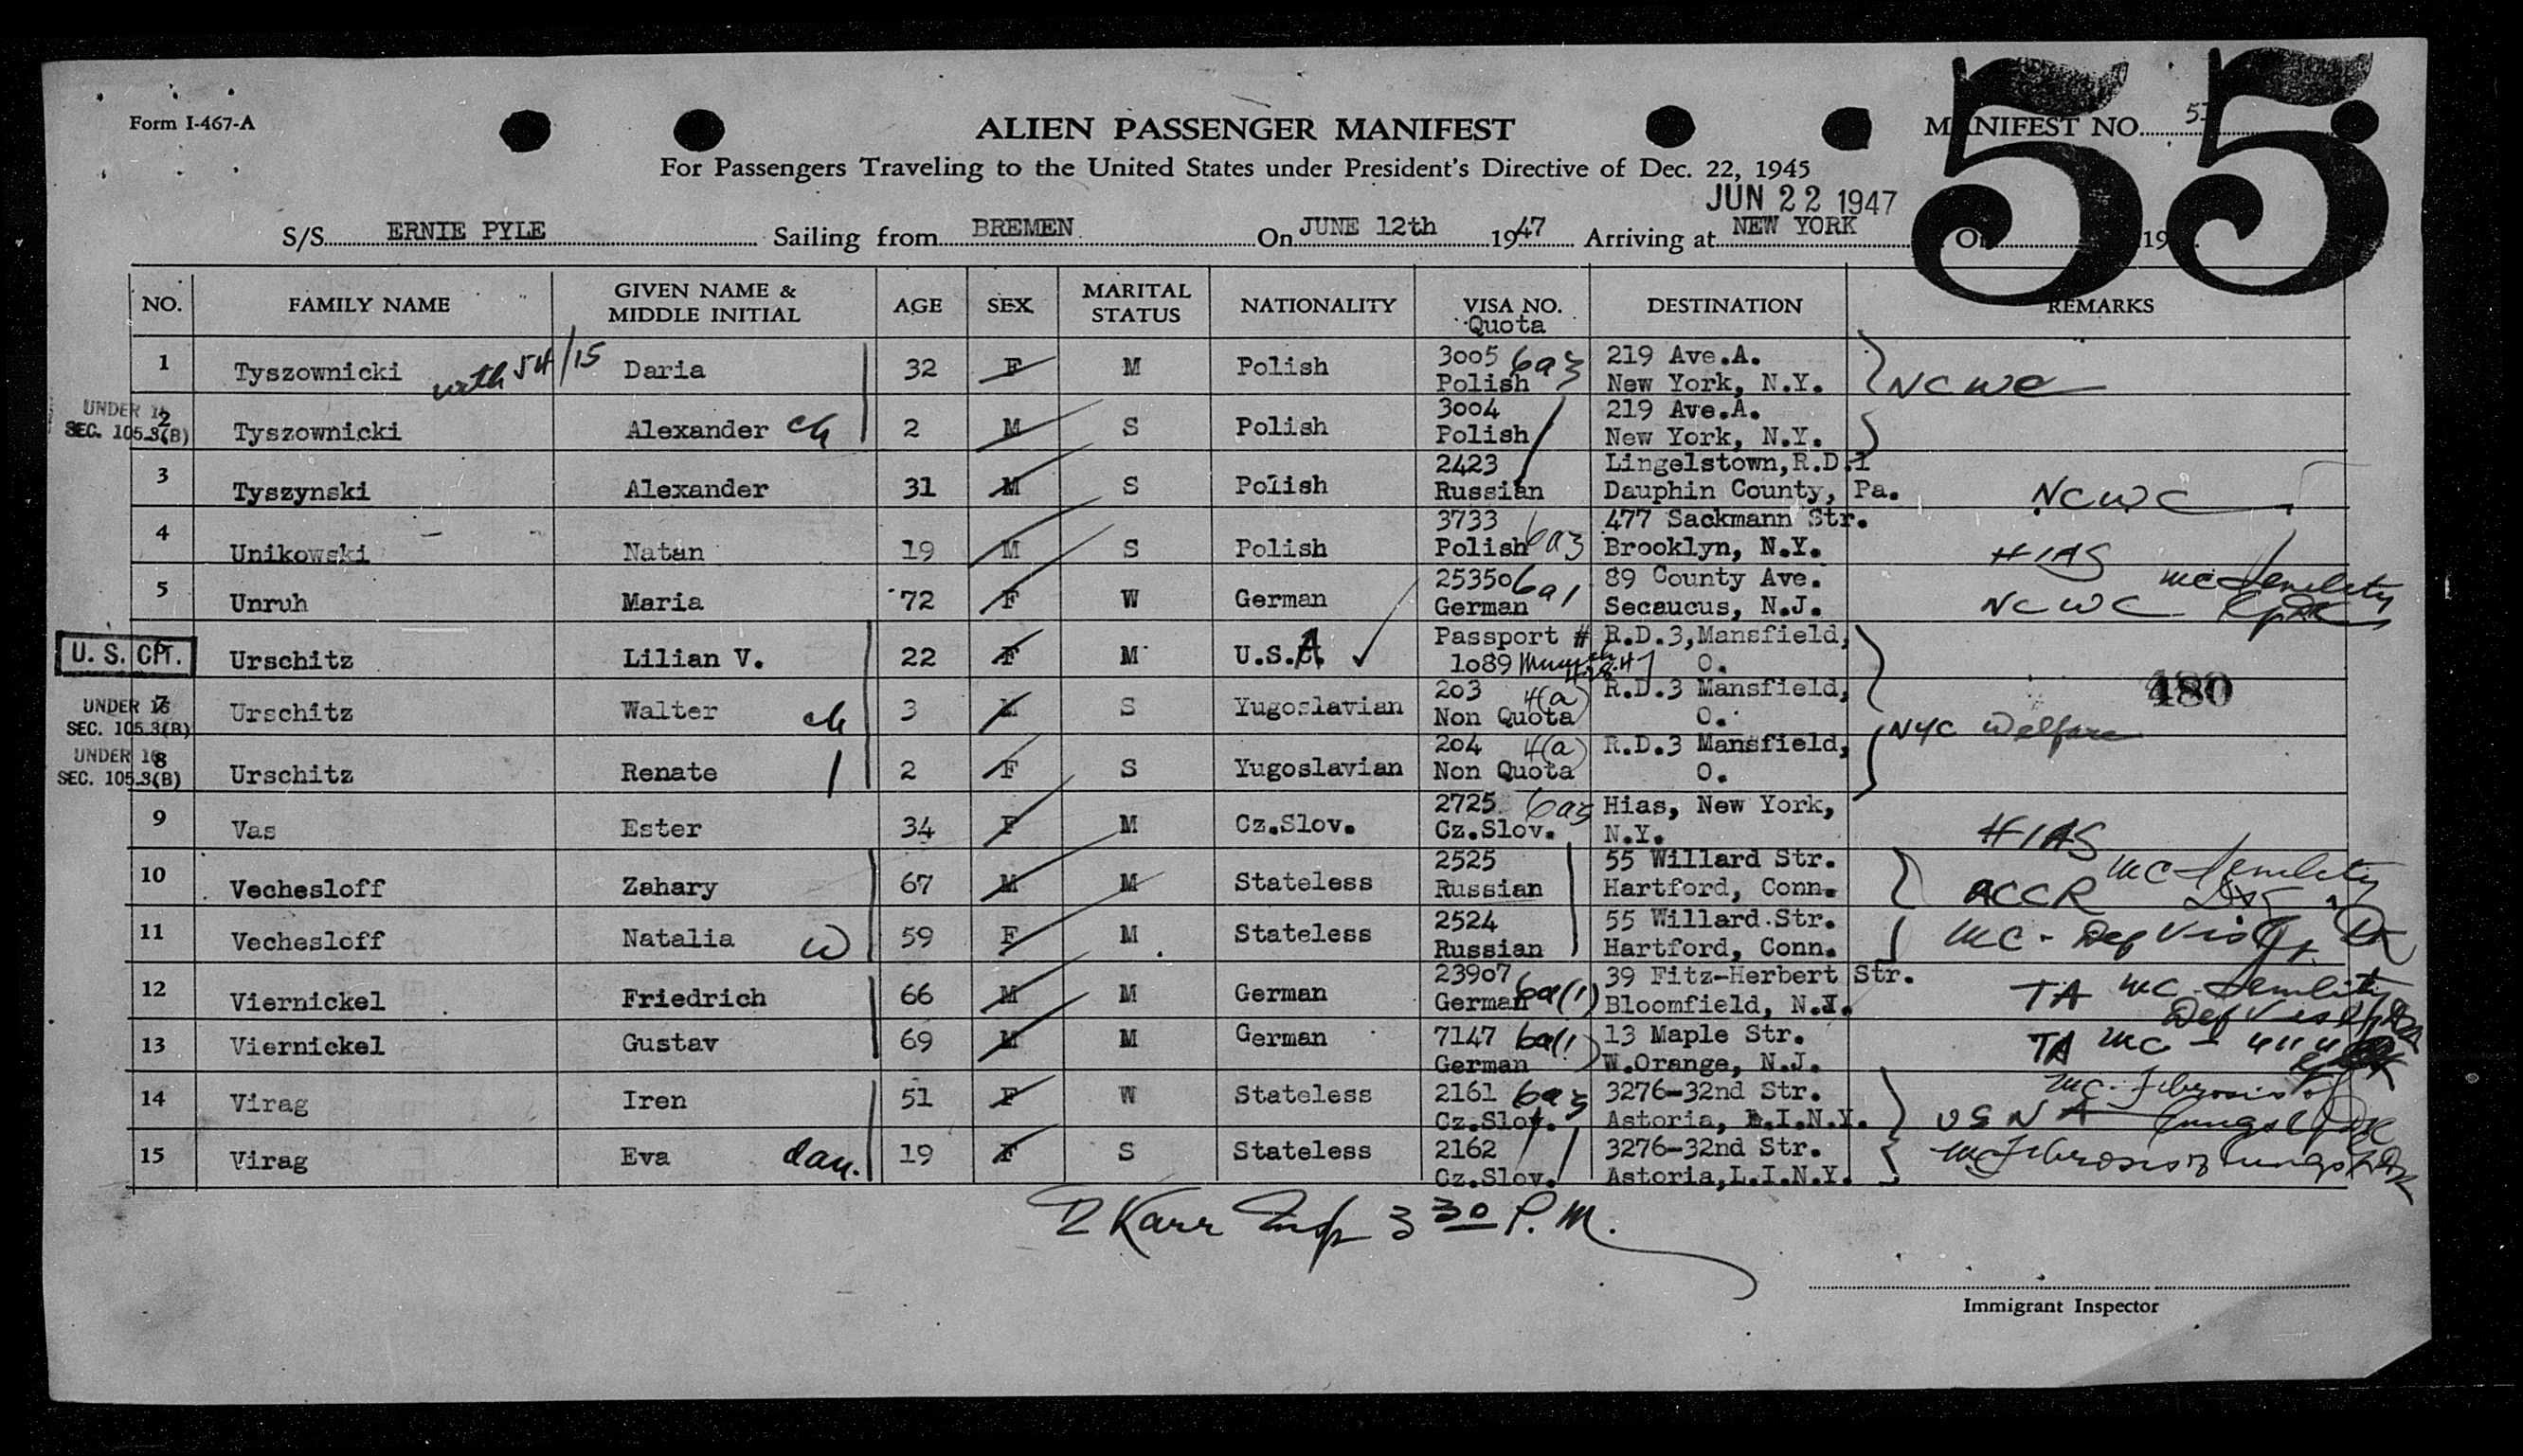 Form I-467-A
ALIEN PASSENGER MANIFEST
MANIFEST NO.
55
For Passengers Traveling to the United States under President's Directive of Dec. 22, 1945
JUN 22 1947
S/S ERNIE PYLE Sailing from BREMEN On JUNE 12th 1947 Arriving at NEW YORK On 19
NO. FAMILY NAME GIVEN NAME & MIDDLE INITIAL AGE SEX MARITAL STATUS NATIONALITY VISA NO. Quota DESTINATION REMARKS
1 Tyszownicki with 54/15 Daria 32 F M Polish 3005 6a3 Polish 219 Ave.A. New York, N.Y. NCWC
UNDER 16 SEC. 105.3(B) 2 Tyszownicki Alexander ch 2 M S Polish 3004 Polish 219 Ave.A. New York, N.Y.
3 Tyszynski Alexander 31 M S Polish 2423 Russian Lingelstown,R.D.1 Dauphin County, Pa. NCWC
4 Unikowski Natan 19 M S Polish 3733 Polish 6a3 477 Sackmann Str. Brooklyn, N.Y. HIAS
5 Unruh Maria 72 F W German 25350 6a1 German 89 County Ave. Secaucus, N.J. NCWC MC Senility
U. S. CIT. Urschitz Lilian V. 22 F M U.S.A. Passport # 1089 R.D.3,Mansfield, O.
UNDER 16 SEC. 105.3(B) 7 Urschitz Walter ch 3 M S Yugoslavian 203 4(a) Non Quota R.D.3 Mansfield, O. 480
NYC Welfare
UNDER 16 SEC. 105.3(B) 8 Urschitz Renate 2 F S Yugoslavian 204 4(a) Non Quota R.D.3 Mansfield, O.
9 Vas Ester 34 F M Cz.Slov. 2725 6a3 Cz.Slov. Hias, New York, N.Y. HIAS
10 Vechesloff Zahary 67 M M Stateless 2525 Russian 55 Willard Str. Hartford, Conn. ACCR MC Senility
11 Vechesloff Natalia W 59 F M Stateless 2524 Russian 55 Willard Str. Hartford, Conn. MC - Def Vis
12 Viernickel Friedrich 66 M M German 23907 6a(1) German 39 Fitz-Herbert Str. Bloomfield, N.J. TA MC Senility Def Vis
13 Viernickel Gustav 69 M M German 7147 6a(1) German 13 Maple Str. W.Orange, N.J. TA MC - " " "
14 Virag Iren 51 F W Stateless 2161 6a3 Cz.Slov. 3276-32nd Str. Astoria, L.I.N.Y. USNA MC. Fibrosis of lungs
15 Virag Eva dau. 19 F S Stateless 2162 Cz.Slov. 3276-32nd Str. Astoria,L.I.N.Y. MC Fibrosis of lungs
Karr Insp 3 30 P.M.
Immigrant Inspector